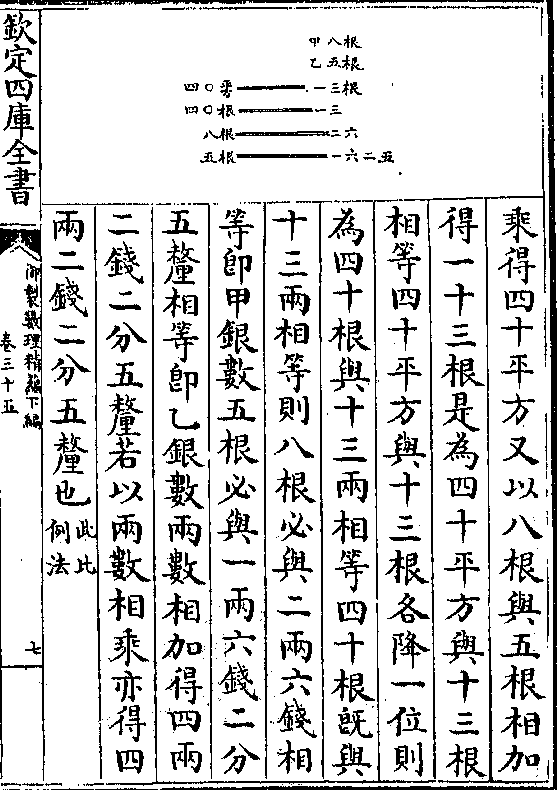 甲八根
乙五根
四〇平方 一三根
四〇根 一三
八根 二六
五根 一六二五
乘得四十平方又以八根與五根相加
得一十三根是為四十平方與十三根
相等四十平方與十三根各降一位則
為四十根與十三兩相等四十根既與
十三兩相等則八根必與二兩六錢相
等即甲銀數五根必與一兩六錢二分
五釐相等即乙銀數兩數相加得四兩
二錢二分五釐若以兩數相乘亦得四
兩二錢二分五釐也此比
例法
欽定四庫全書
御製數理精蘊下編
卷三十五
七